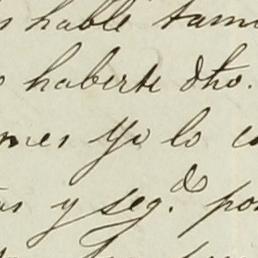 hable tam
haberte dho.
mes Yo lo
y seg.do po